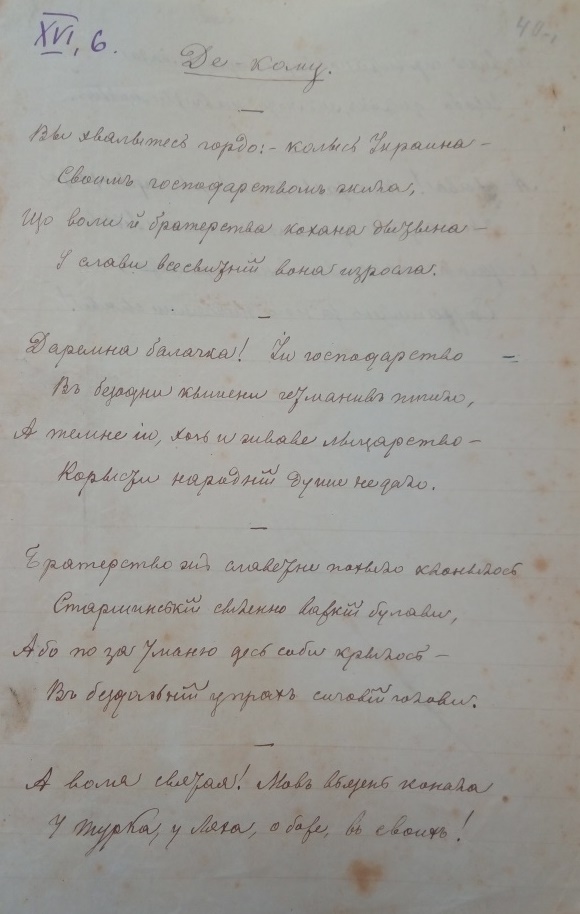 XVI, 6.
40
Де-кому.
Вы хвалытесь гордо:- колысь Украина -
Своимъ господарствомъ жила,
Що воли й братерства кохана дытына -
У слави всесвитній вона изросла.
Даремна балачка! Іи господарство -
Въ безодни кышени гетманивъ
А темне іи, хочь и жваве лыцарство -
Корысты народній души не дало.
Братерство жъ славетне похыло хылылось
Старшинській булави,
Або по за Уманю десь соби крылось -
Въ бездольній сичовій голови.
А воля святая! Мовъ вязень конала
У Турка, у Ляха, о боже, въ своихъ!